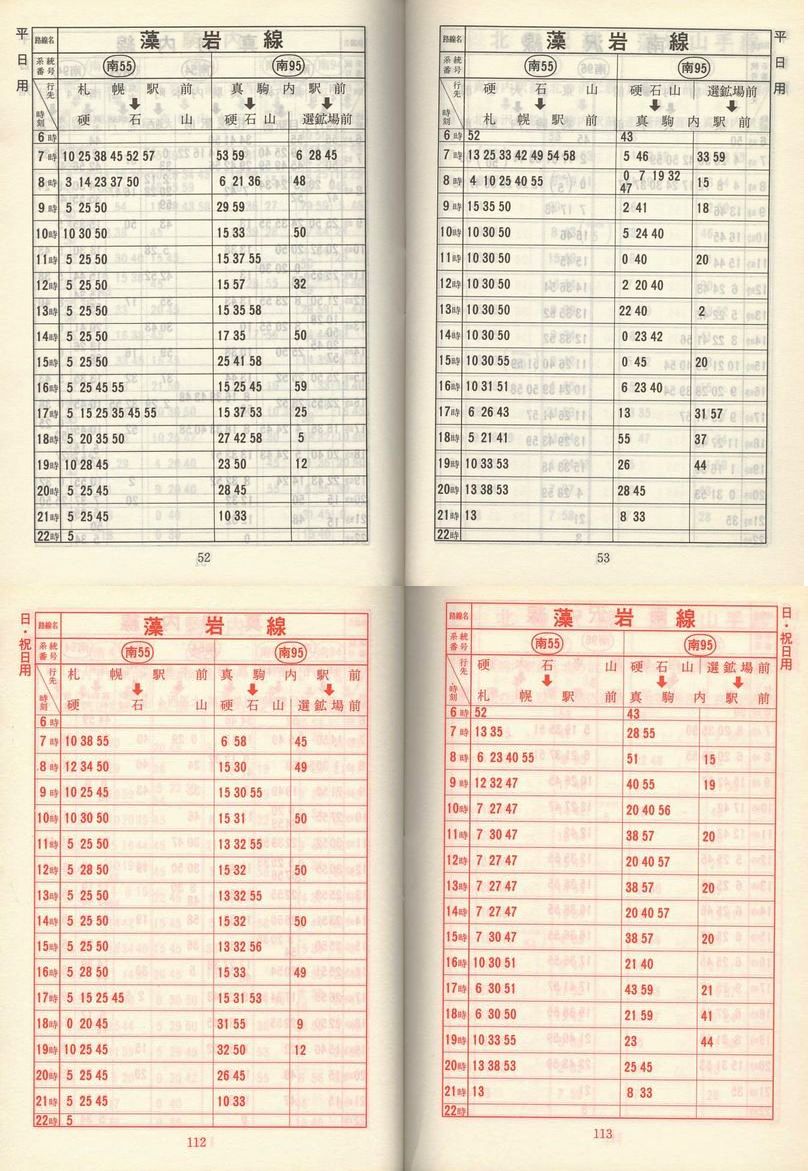 平日用
路線名 藻岩線
系統番号 南55 南95
行先 札幌駅前 真駒内駅前
時刻 硬石山 硬石山 選鉱場前
6時
7時 10 25 38 45 52 57 53 59 6 28 45
8時 3 14 23 37 50 6 21 36 48
9時 5 25 50 29 59
10時 10 30 50 15 33 50
11時 5 25 50 15 37 55
12時 5 25 50 15 57 32
13時 5 25 50 15 35 58
14時 5 25 50 17 35 50
15時 5 25 50 25 41 58
16時 5 25 45 55 15 25 45 59
17時 5 15 25 35 45 55 15 37 53 25
18時 5 20 35 50 27 42 58 5
19時 10 28 45 23 50 12
20時 5 25 45 28 45
21時 5 25 45 10 33
22時 5
52
平日用
路線名 藻岩線
系統番号 南55 南95
行先 硬石山 硬石山 選鉱場前
時刻 札幌駅前 真駒内駅前
6時 52 43
7時 13 25 33 42 49 54 58 5 46 33 59
8時 4 10 25 40 55 0 7 19 32 47 15
9時 15 35 50 2 41 18
10時 10 30 50 5 24 40
11時 10 30 50 0 40 20
12時 10 30 50 2 20 40
13時 10 30 50 22 40 2
14時 10 30 50 0 23 42
15時 10 30 55 0 45 20
16時 10 31 51 6 23 40
17時 6 26 43 13 31 57
18時 5 21 41 55 37
19時 10 33 53 26 44
20時 13 38 53 28 45
21時 13 8 33
22時
53
日・祝日用
路線名 藻岩線
系統番号 南55 南95
行先 札幌駅前 真駒内駅前
時刻 硬石山 硬石山 選鉱場前
6時
7時 10 38 55 6 58 45
8時 12 34 50 15 30 49
9時 10 25 45 15 30 55
10時 10 30 50 15 31 50
11時 5 25 50 13 32 55
12時 5 28 50 15 32 50
13時 5 25 50 13 32 55
14時 5 25 50 15 32 50
15時 5 25 50 13 32 56
16時 5 28 50 15 33 49
17時 5 15 25 45 15 31 53
18時 0 20 45 31 55 9
19時 10 25 45 32 50 12
20時 5 25 45 26 45
21時 5 25 45 10 33
22時 5
112
日・祝日用
路線名 藻岩線
系統番号 南55 南95
行先 硬石山 硬石山 選鉱場前
時刻 札幌駅前 真駒内駅前
6時 52 43
7時 13 35 28 55
8時 6 23 40 55 51 15
9時 12 32 47 40 55 19
10時 7 27 47 20 40 56
11時 7 30 47 38 57 20
12時 7 27 47 20 40 57
13時 7 27 47 38 57 20
14時 7 27 47 20 40 57
15時 7 30 47 38 57 20
16時 10 30 51 21 40
17時 6 30 51 43 59 21
18時 6 30 50 21 59 41
19時 10 33 55 23 44
20時 13 38 53 25 45
21時 13 8 33
22時
113